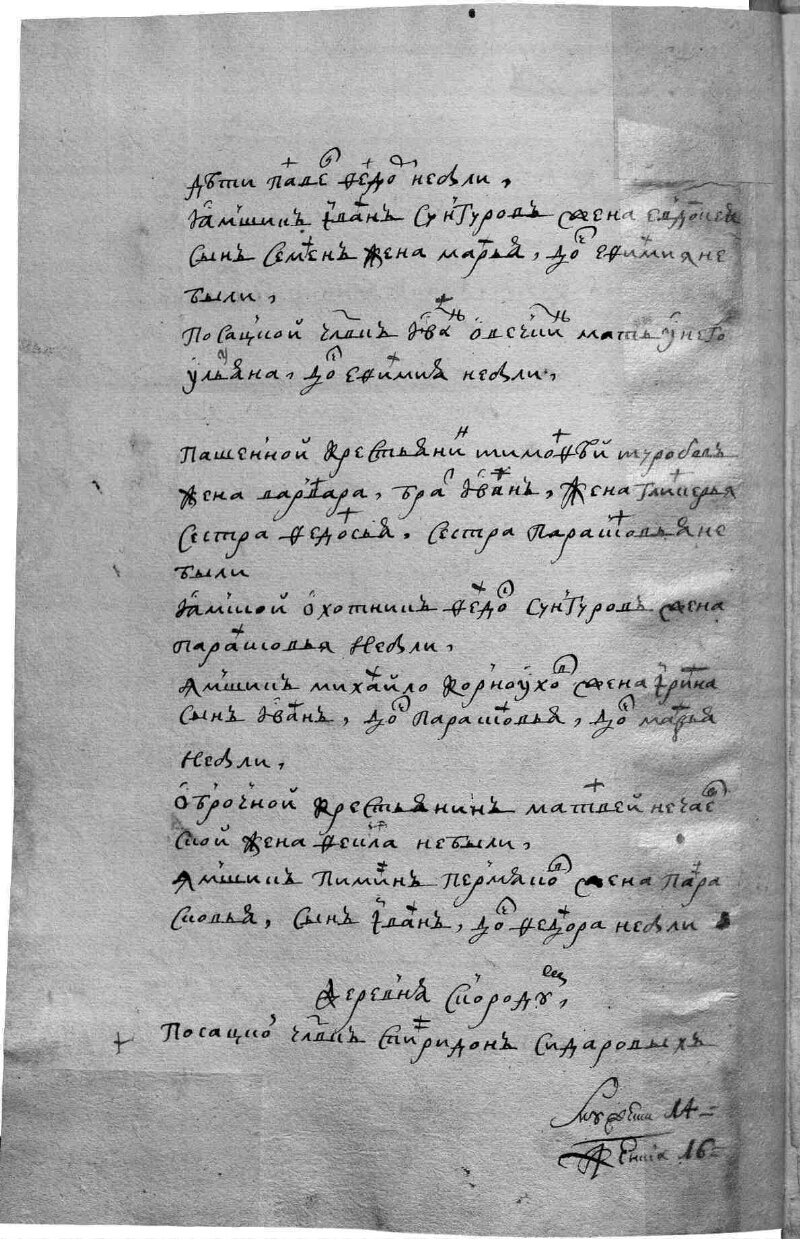 дѣти паве ѳедо небыли,
ямшикъ іванъ сунгуровъ жена евдокея
сынъ семенъ жена марья, до еѳимия не
были,
посацкой члвкъ іва овечкин мать у него
ульяна, до еѳимия небыли,
пашенной крестьянинъ тимоѳѣй туробовъ
жена варвара, бра іванъ, жена гликерья
сестра ѳедосья, сестра парасковья не
были
ямской охотникъ ѳедо сунгуровъ жена
парасковья небыли,
ямшикъ михайло корноухов жена ірина
сынъ іванъ, до парасковья, до марья
небыли,
оброчной крестьянинъ матвей нечаев
ской жена небыли,
ямшикъ пиминъ пермяков жена пара
сковья, сынъ іванъ, до ѳедора небыли
деревня скороду
посацко члвкъ спиридонъ сидаровыхъ
14
16